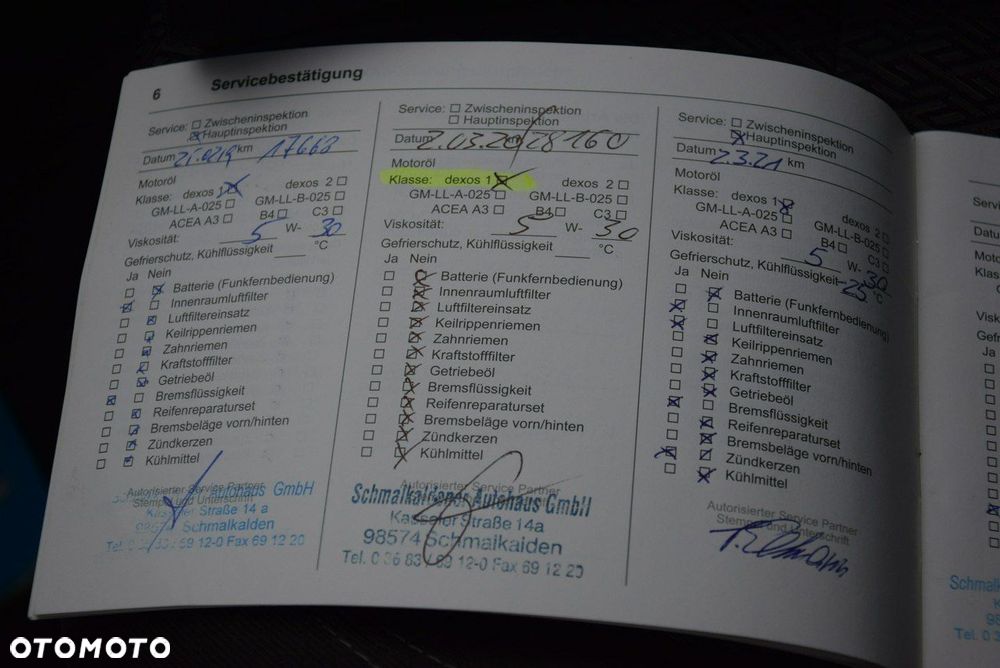 6 Servicebestätigung
Service: Zwischeninspektion
Hauptinspektion
Datum km 17668
Motoröl
Klasse: dexos 1 dexos 2
GM-LL-A-025 GM-LL-B-025
ACEA A3 B4 C3
Viskosität: 5 W- 30
Gefrierschutz, Kühlflüssigkeit °C
Ja Nein
Batterie (Funkfernbedienung)
Innenraumluftfilter
Luftfiltereinsatz
Keilrippenriemen
Zahnriemen
Kraftstofffilter
Getriebeöl
Bremsflüssigkeit
Reifenreparaturset
Bremsbeläge vorn/hinten
Zündkerzen
Kühlmittel
Autorisierter Service Partner
Stempel und Unterschrift
Autohaus GmbH
Kasseler Straße 14 a
98574 Schmalkalden
Tel. 0 36 83 / 69 12-0 Fax 69 12 20
Service: Zwischeninspektion
Hauptinspektion
Datum 2.03.20 km 28160
Motoröl
Klasse: dexos 1 dexos 2
GM-LL-A-025 GM-LL-B-025
ACEA A3 B4 C3
Viskosität: 5 W- 30
Gefrierschutz, Kühlflüssigkeit °C
Ja Nein
Batterie (Funkfernbedienung)
Innenraumluftfilter
Luftfiltereinsatz
Keilrippenriemen
Zahnriemen
Kraftstofffilter
Getriebeöl
Bremsflüssigkeit
Reifenreparaturset
Bremsbeläge vorn/hinten
Zündkerzen
Kühlmittel
Autorisierter Service Partner
Schmalkaldener Autohaus GmbH
Kasseler Straße 14a
98574 Schmalkalden
Tel. 0 36 83 / 69 12-0 Fax 69 12 20
Service: Zwischeninspektion
Hauptinspektion
Datum 2.3.21 km
Motoröl
Klasse: dexos 1 dexos 2
GM-LL-A-025 GM-LL-B-025
ACEA A3 B4 C3
Viskosität: 5 W- 30
Gefrierschutz, Kühlflüssigkeit -25 °C
Ja Nein
Batterie (Funkfernbedienung)
Innenraumluftfilter
Luftfiltereinsatz
Keilrippenriemen
Zahnriemen
Kraftstofffilter
Getriebeöl
Bremsflüssigkeit
Reifenreparaturset
Bremsbeläge vorn/hinten
Zündkerzen
Kühlmittel
Autorisierter Service Partner
Stempel und Unterschrift
Service:
Datu
Motoröl
Klas
Visk
Gef
Ja
Schmalk
OTOMOTO